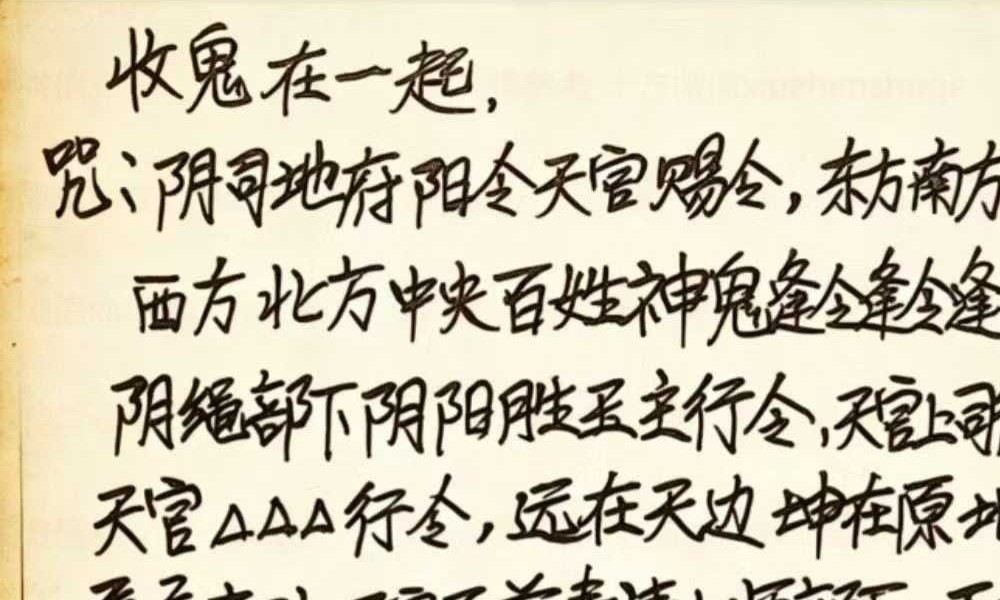 收鬼在一起,
咒:阴司地府阳令天官赐令,东方南方
西方北方中央百姓神鬼逢令逢令逢
阴绳部下阴阳胜玉主行令,天官上司
天官△△△行令,远在天边坤在原地